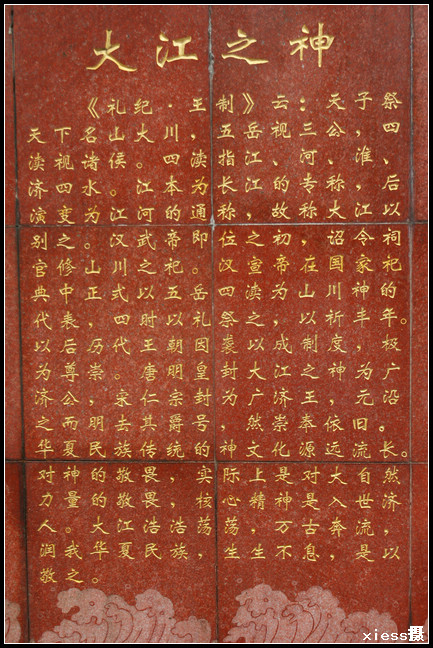 大江之神
《礼纪·王制》云：天子祭
天下名山大川，五岳视三公，四
渎视诸侯。四渎指江、河、淮、
济四水。江本为长江的专称，后
演变为江河的通称，故称大江以
别之。汉武帝即位之初，诏令祠
官修山川之祀。汉宣帝在国家祀
典中正式以五岳四渎为山川神的
代表，四时以礼祭之，以祈丰年。
以后历代王朝因袭以成制度，极
为尊崇。唐明皇封大江之神为广
济公，宋仁宗封为广济王，元沿
之。而明去其爵号，然崇奉依旧。
华夏民族传统的神文化源远流长。
对神的敬畏，实际上是对大自然
力量的敬畏，核心精神是入世济
人。大江浩浩荡荡，万古奔流，
润我华夏民族，生生不息，是以
敬之。
xiess摄